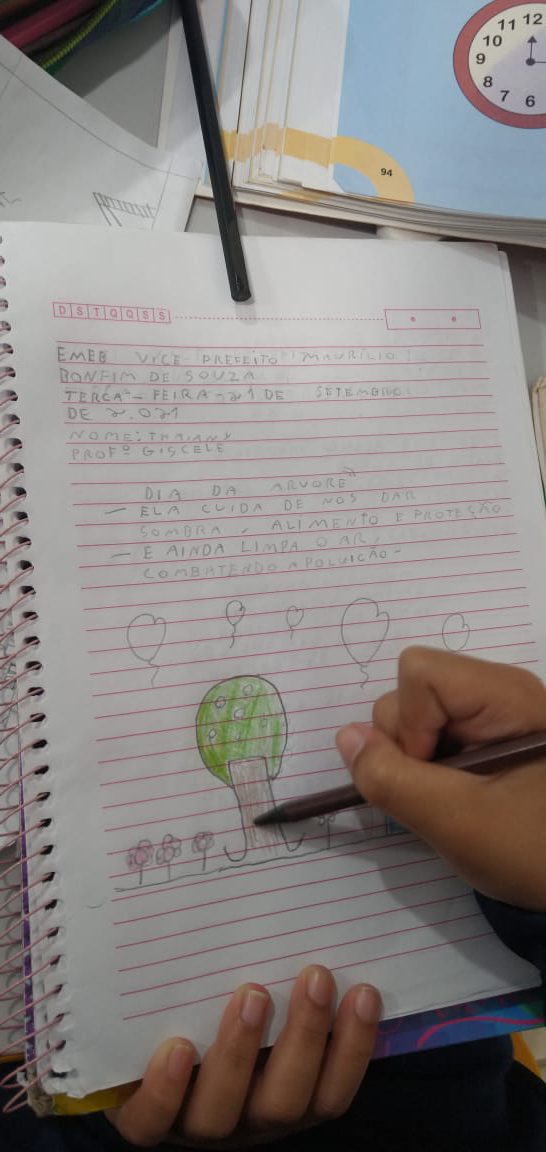 11 12
10
9
8
7 6
94
D S T Q Q S S
EMEB VICE-PREFEITO MAURÍLIO
BONFIM DE SOUZA
TERCA-FEIRA-21 DE SETEMBRO
DE 2.021
NOME: THAIANY
PROFº GISCELE
DIA DA ARVORE
- ELA CUIDA DE NOS DAR
SOMBRA, ALIMENTO E PROTEÇÃO
- E AINDA LIMPA O AR,
COMBATENDO A POLUICÃO-